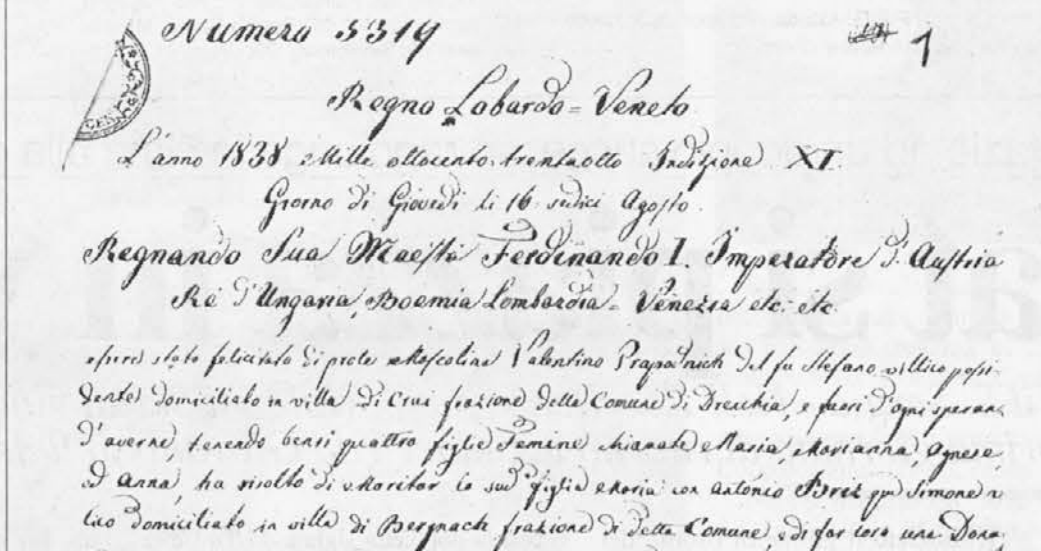 Numero 5319
1
Regno Lobardo = Veneto
L'anno 1838 Mille ottocento trentaotto Indizione XI.
Giorno di Giovedi li 16 sedici Agosto.
Regnando Sua Maestà Ferdinando I. Imperatore d'Austria
Re d'Ungaria, Boemia Lombardia = Venezia etc: etc:
stato felicitato di prole Mascolina Valentino Prapotnich del fu Stefano villico possi-
dente domiciliato in villa di Crai frazione della Comune di Drenchia, e fuori d'ogni speran
d'averne tenendo bensi quattro figlie Femine chiamate Maria, Marianna, Agnese
ed Anna, ha risolto di Maritar la sua figlia Maria con Antonio qm Simone
lico domiciliato in villa di Bergnach frazione di detta Comune, e di far loro una Dona